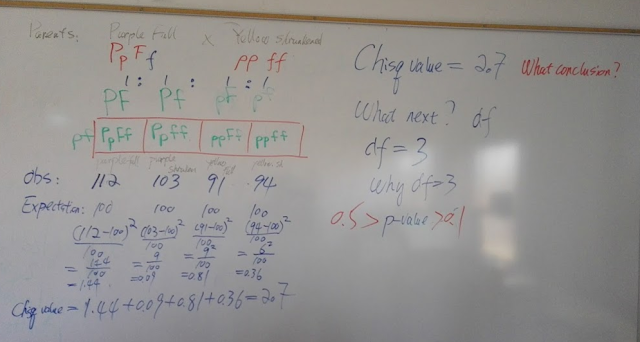 Parents: Purple Full x Yellow shrunken
Pp Ff pp ff
1 : 1 : 1 : 1
PF Pf pF pf
pf PpFf Ppff ppFf ppff
purple full purple shrunken yellow full
obs: 112 103 91 94
Expectation: 100 100 100 100
(112-100)² (103-100)² (91-100)² (94-100)²
100 100 100 100
= 144/100 = 9/100 = 9²/100 = 6²/100
= 1.44 = 0.09 = 0.81 = 0.36
Chisq value = 1.44 + 0.09 + 0.81 + 0.36 = 2.7
Chisq value = 2.7 What conclusion?
What next? df
df = 3
Why df=3
0.5 > p-value > 0.1